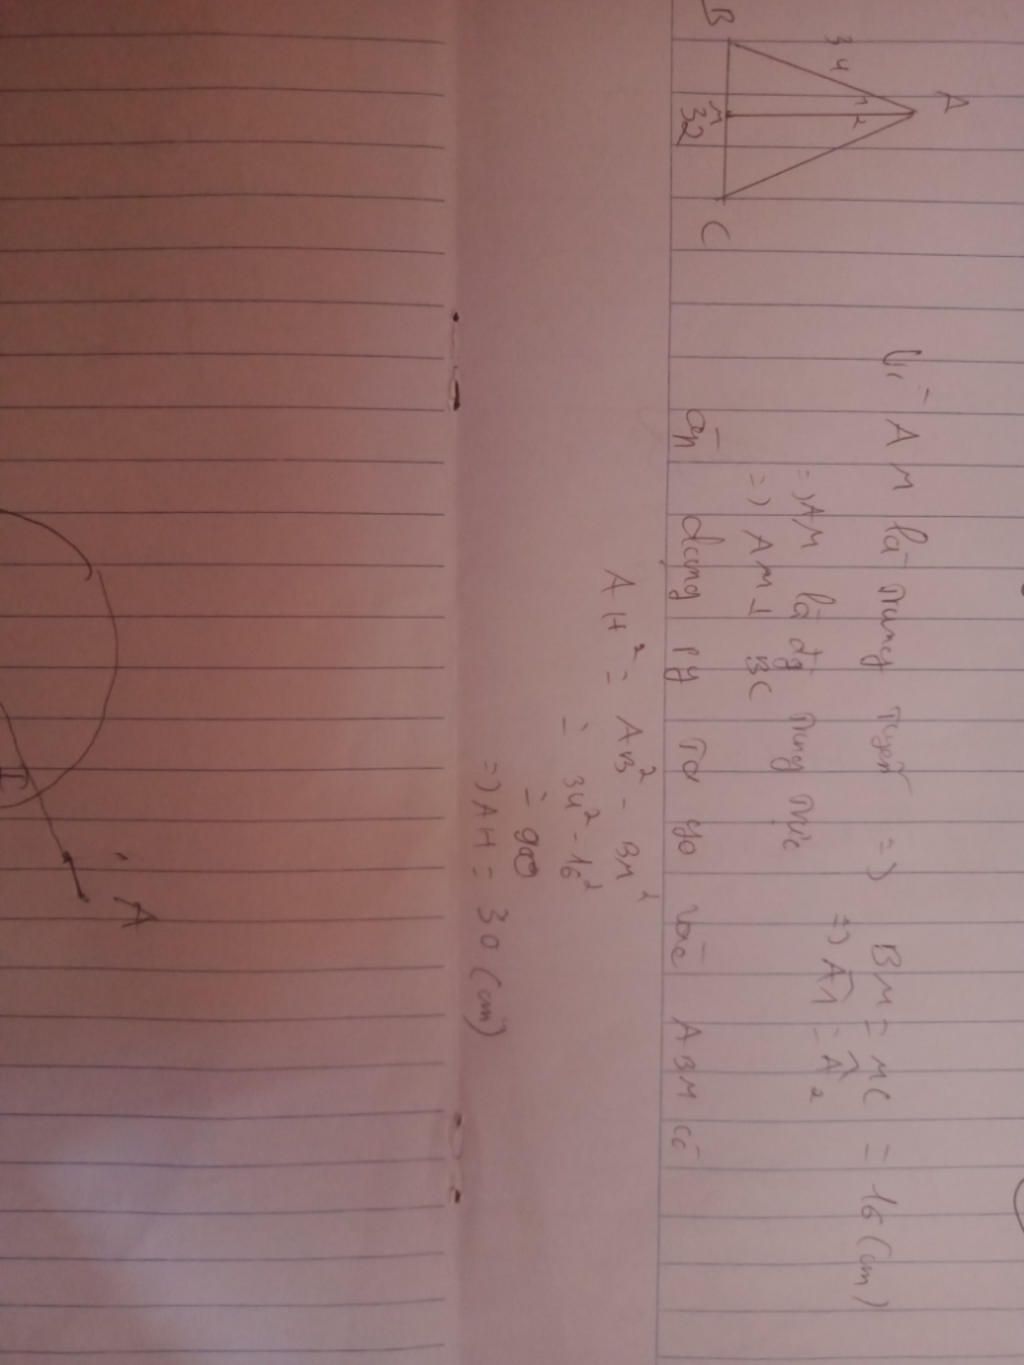 A
34
1 2
B
M
C
32
Vì AM là trung tuyến => BM = MC = 16 (cm)
=> Â1 = Â2
=> AM là đg trung trực
=> AM ⊥ BC
áp dụng py ta go vào ABM có
AH² = AB² - BM²
= 34² - 16²
= 900
=> AH = 30 (cm)
A
I